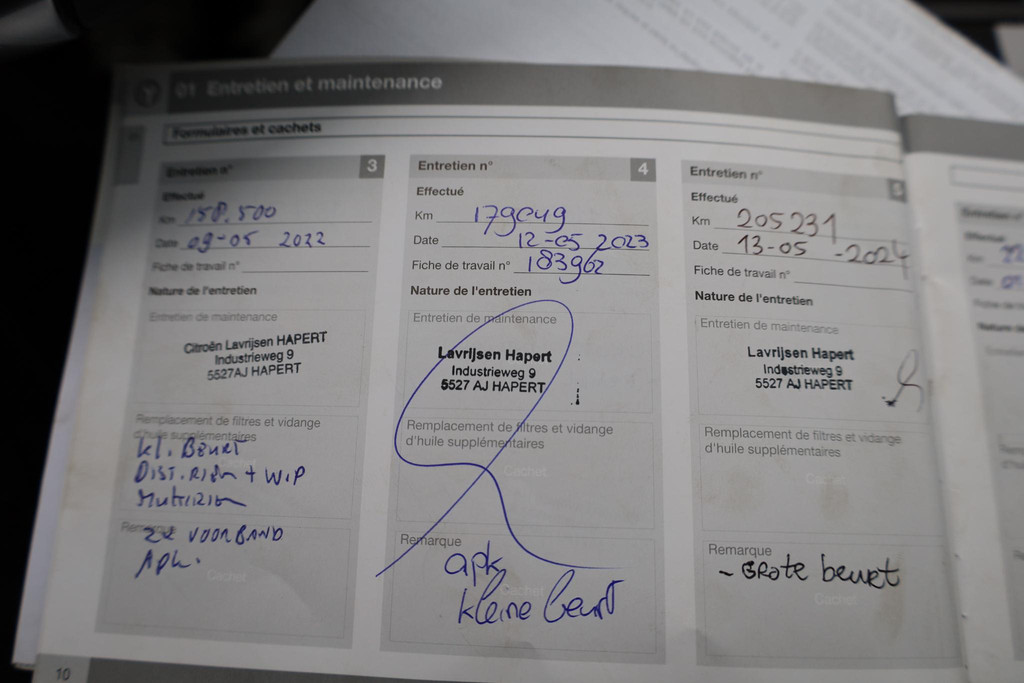 01 Entretien et maintenance
Formulaires et cachets
Entretien n° 3
Effectué
Km 158.500
Date 09-05 2022
Fiche de travail n°
Nature de l'entretien
Entretien de maintenance
Citroën Lavrijsen HAPERT
Industrieweg 9
5527AJ HAPERT
Remplacement de filtres et vidange
d'huile supplémentaires
kl. Beurt
Dist. Riem + W.P
Multiriem
Remarque
2x VOORBAND
Apk.
Cachet
Entretien n° 4
Effectué
Km 179049
Date 12-05 2023
Fiche de travail n° 183962
Nature de l'entretien
Entretien de maintenance
Lavrijsen Hapert
Industrieweg 9
5527 AJ HAPERT
Remplacement de filtres et vidange
d'huile supplémentaires
Cachet
Remarque
apk
kleine beurt
Cachet
Entretien n° 5
Effectué
Km 205231
Date 13-05-2024
Fiche de travail n°
Nature de l'entretien
Entretien de maintenance
Lavrijsen Hapert
Industrieweg 9
5527 AJ HAPERT
Remplacement de filtres et vidange
d'huile supplémentaires
Cachet
Remarque
- GRote beurt
Cachet
10